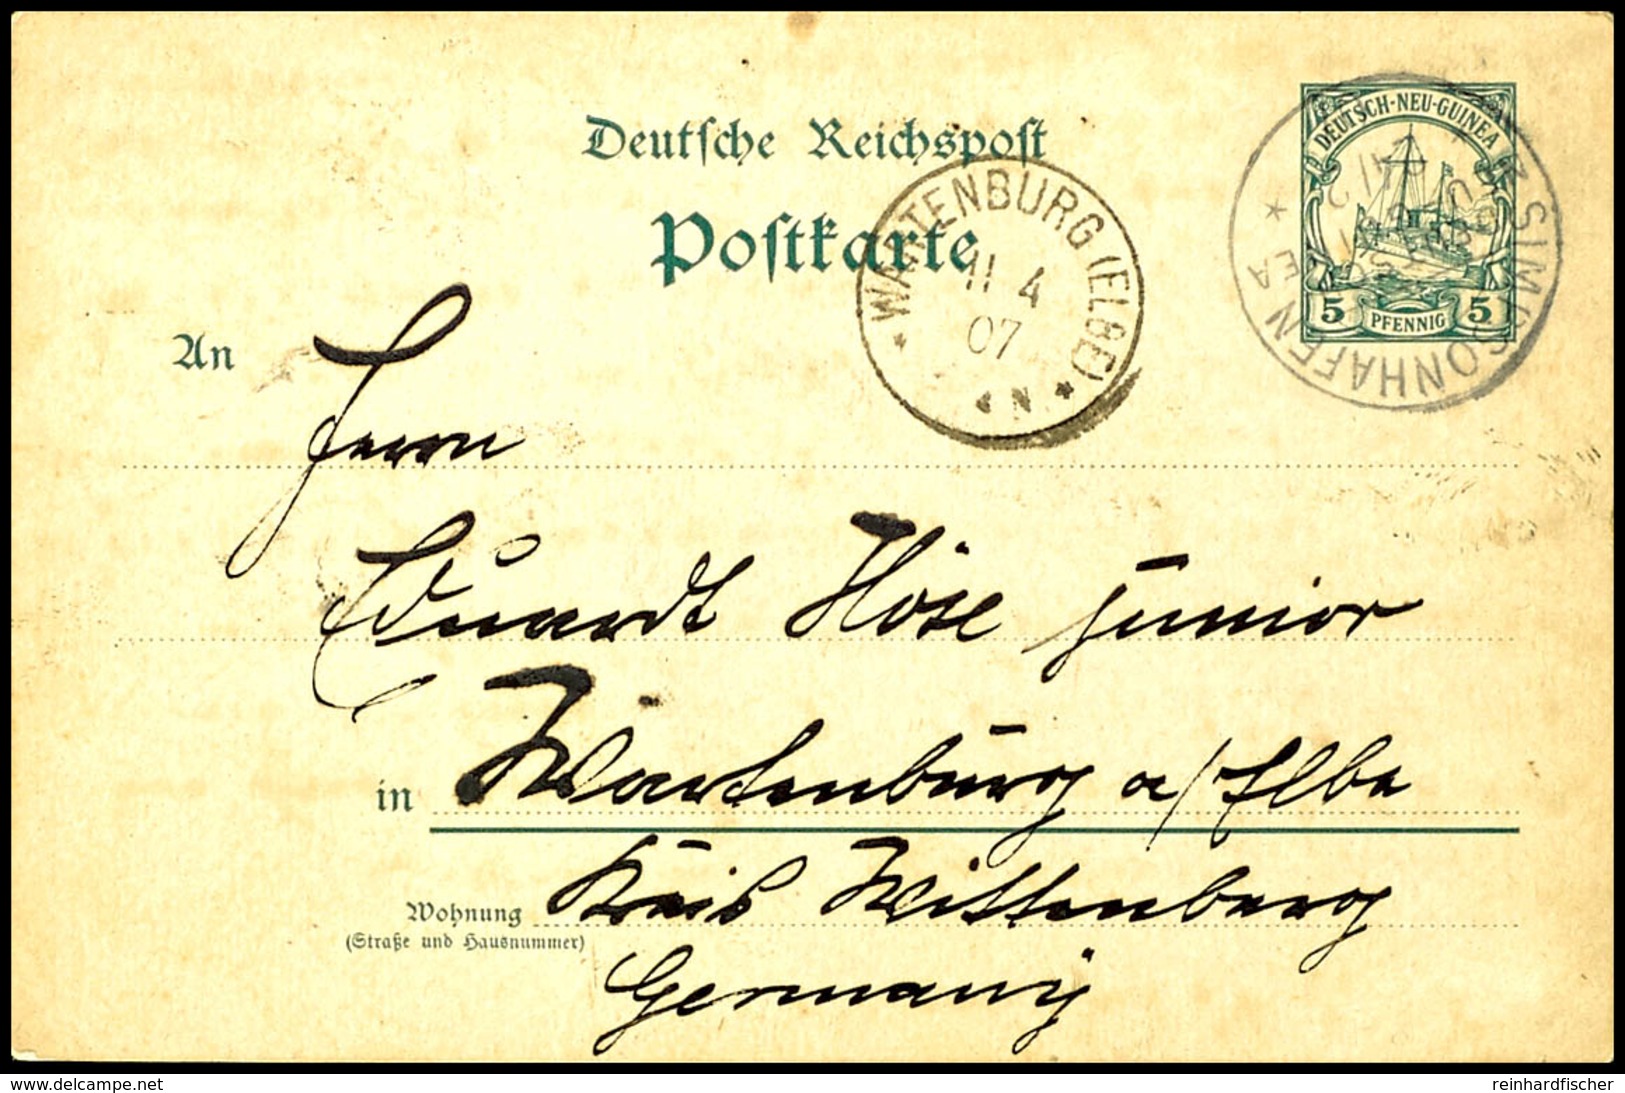 Deutsche Reichspost
Postkarte
DEUTSCH-NEU-GUINEA
5 PFENNIG 5
SIMPSONHAFEN
* WARTENBURG (ELBE) *
11 4
07
N
An
Herrn
Eduardt Höse junior
in Wartenburg a/Elbe
Wohnung Kreis Wittenberg
(Straße und Hausnummer)
Germany
delcampe.net
reinhardfischer